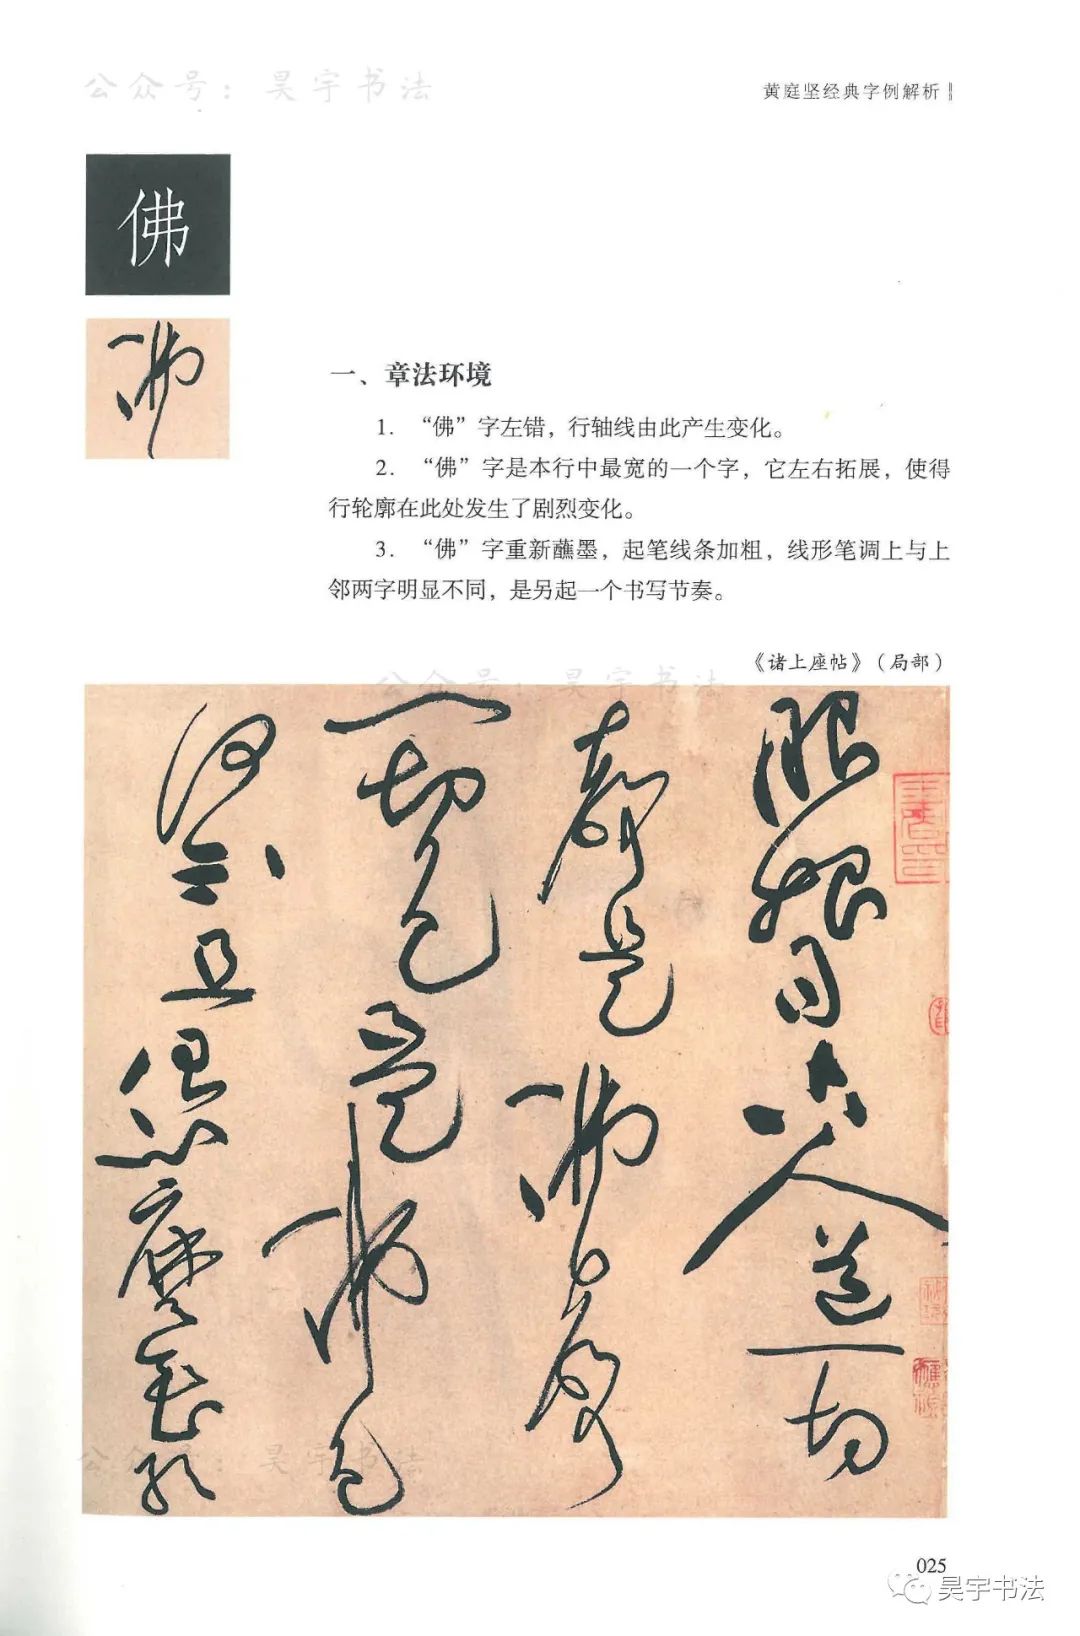 公众号：昊宇书法
黄庭坚经典字例解析
佛
佛
一、章法环境
1. “佛”字左错，行轴线由此产生变化。
2. “佛”字是本行中最宽的一个字，它左右拓展，使得
行轮廓在此处发生了剧烈变化。
3. “佛”字重新蘸墨，起笔线条加粗，线形笔调上与上
邻两字明显不同，是另起一个书写节奏。
《诸上座帖》（局部）
公众号：昊宇书法
眼根古人道一切
聲是佛聲
一切色是佛色
何不且恁麼會取
公众号：昊宇书法
025
昊宇书法